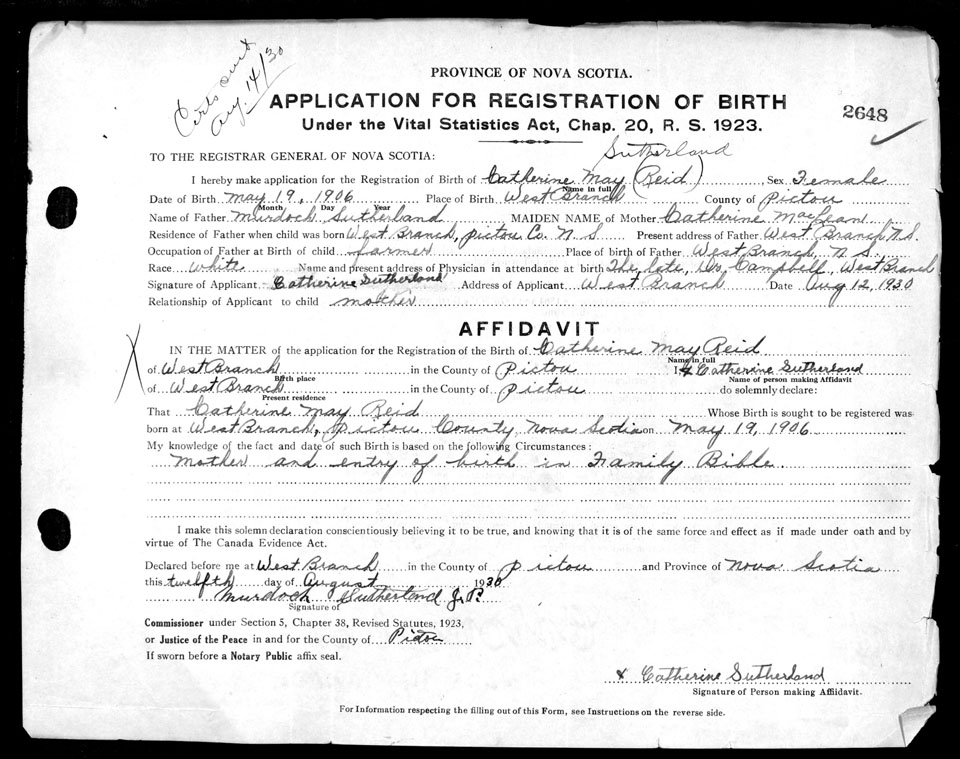 Certs sent
Aug. 14/30
PROVINCE OF NOVA SCOTIA.
APPLICATION FOR REGISTRATION OF BIRTH
2648
Under the Vital Statistics Act, Chap. 20, R. S. 1923.
Sutherland
TO THE REGISTRAR GENERAL OF NOVA SCOTIA:
I hereby make application for the Registration of Birth of Catherine May (Reid) Sex Female
Name in full
Date of Birth May 19, 1906 Place of Birth West Branch County of Pictou
Month Day Year
Name of Father Murdoch Sutherland MAIDEN NAME of Mother Catherine MacLean
Residence of Father when child was born West Branch, Pictou Co. N. S Present address of Father West Branch N.S.
Occupation of Father at Birth of child farmer Place of birth of Father West Branch, N. S.
Race White Name and present address of Physician in attendance at birth The late, Dr. Campbell, West Branch
Signature of Applicant Catherine Sutherland Address of Applicant West Branch Date Aug 12, 1930
Relationship of Applicant to child mother
AFFIDAVIT
IN THE MATTER of the application for the Registration of the Birth of Catherine May Reid
Name in full
of West Branch in the County of Pictou I, x Catherine Sutherland
Birth place Name of person making Affidavit
of West Branch in the County of Pictou do solemnly declare:
Present residence
That Catherine May Reid Whose Birth is sought to be registered was
born at West Branch, Pictou County, Nova Scotia on May 19, 1906
My knowledge of the fact and date of such Birth is based on the following Circumstances:
Mother and entry of birth in Family Bible
I make this solemn declaration conscientiously believing it to be true, and knowing that it is of the same force and effect as if made under oath and by
virtue of The Canada Evidence Act.
Declared before me at West Branch in the County of Pictou and Province of Nova Scotia
this twelfth day of August 1930
Murdoch Sutherland J.P.
Signature of
Commissioner under Section 5, Chapter 38, Revised Statutes, 1923,
or Justice of the Peace in and for the County of Pictou
If sworn before a Notary Public affix seal.
x Catherine Sutherland
Signature of Person making Affidavit.
For Information respecting the filling out of this Form, see Instructions on the reverse side.